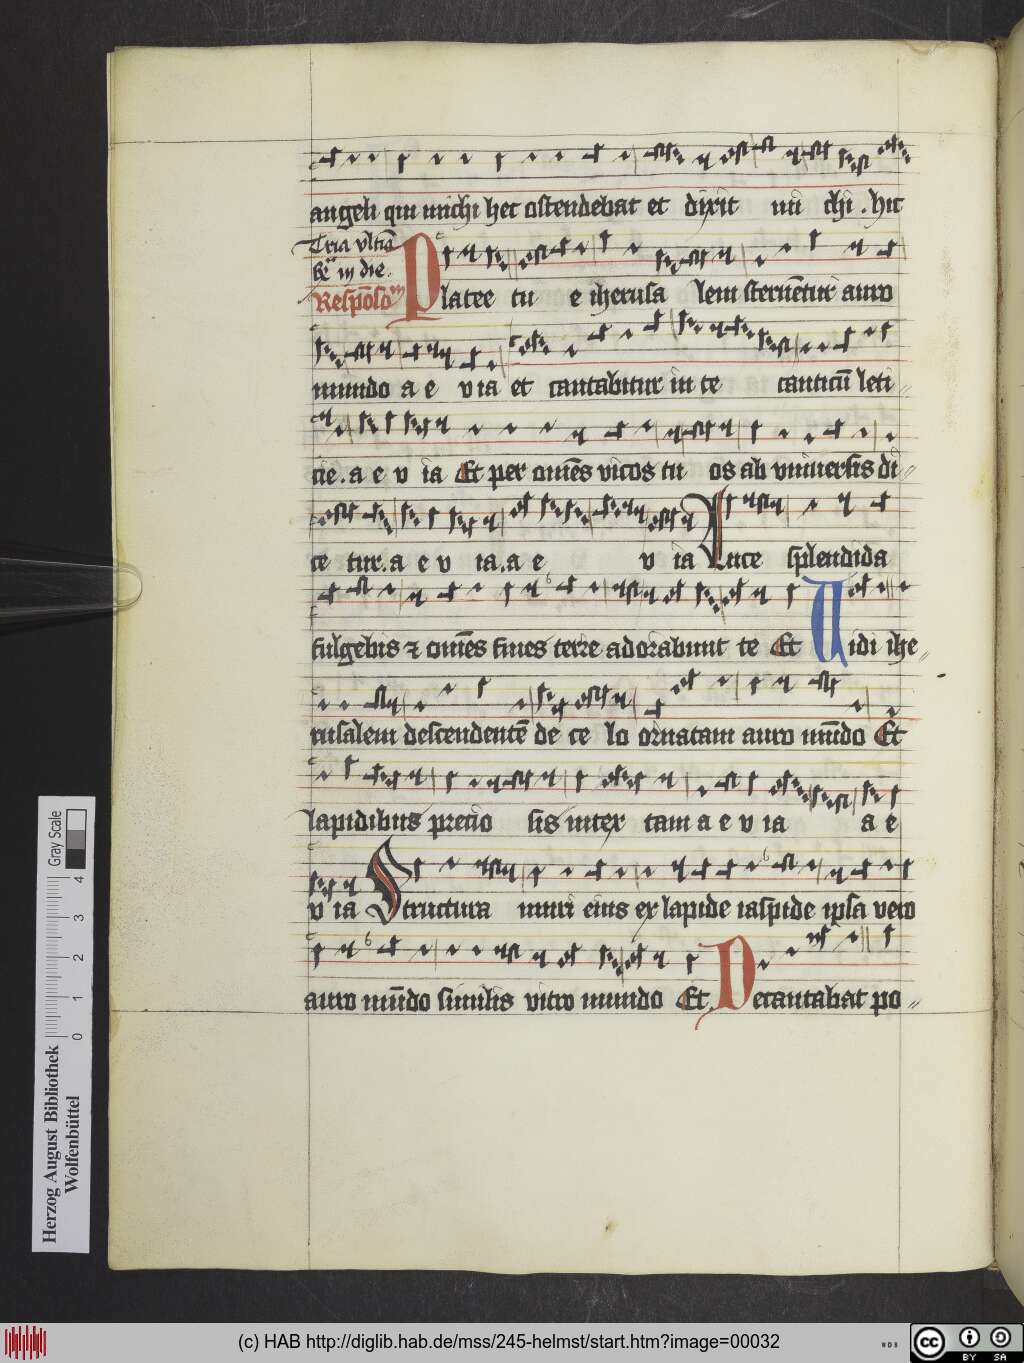 angeli qui michi hec ostendebat et dixit mi chi . hic
Tria vltīa
in die.
Respōso
Platee tu e iherusa lem sternētur auro
mundo a e v ia et cantabitur in te canticū leti
cie . a e v ia Et per omēs vicos tu os ab vniuersis di
ce tur . a e v ia . a e v ia Luce splendida
fulgebis ⁊ omēs fines terre adorabunt te Et Uidi ihe
rusalem descendentē de ce lo ornatam auro mūdo Et
lapidibus precio sis inter tam a e v ia a e
v ia Structura muri eius ex lapide iaspide ipsa vero
auro mūdo similis vitro mundo Et. Decantabat po
Herzog August Bibliothek
Wolfenbüttel
0 1 2 3 4
Gray Scale
(c) HAB http://diglib.hab.de/mss/245-helmst/start.htm?image=00032
WDB
cc BY SA